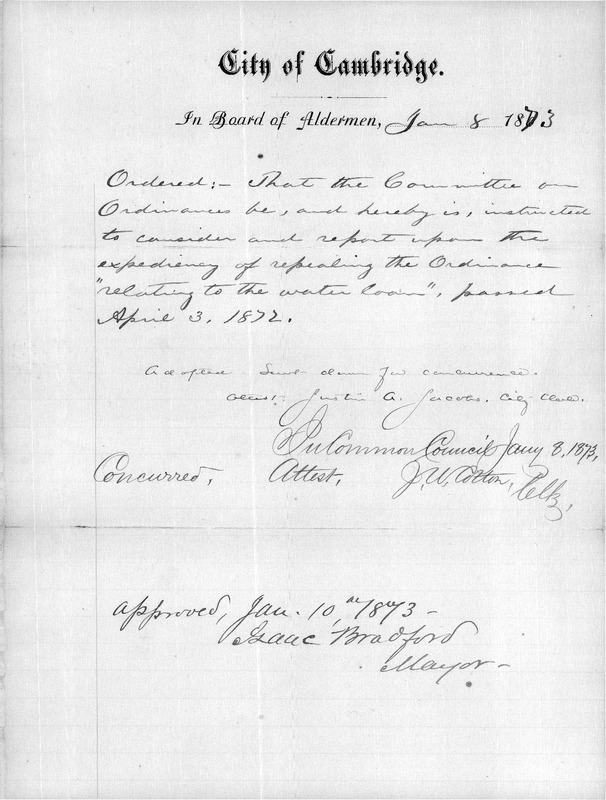 City of Cambridge.
In Board of Aldermen, Jan 8 1873
Ordered:- That the Committee on
Ordinances be, and hereby is, instructed
to consider and report upon the
expediency of repealing the Ordinance
"relating to the water loan", passed
April 3, 1872.
Adopted Sent down for concurrence.
Attest: Justin A. Jacobs. City Clerk.
In Common Council Jany 8, 1873,
Concurred, Attest, J. W. Cotton, Clk,
approved, Jan. 10, 1873 -
Isaac Bradford
Mayor -